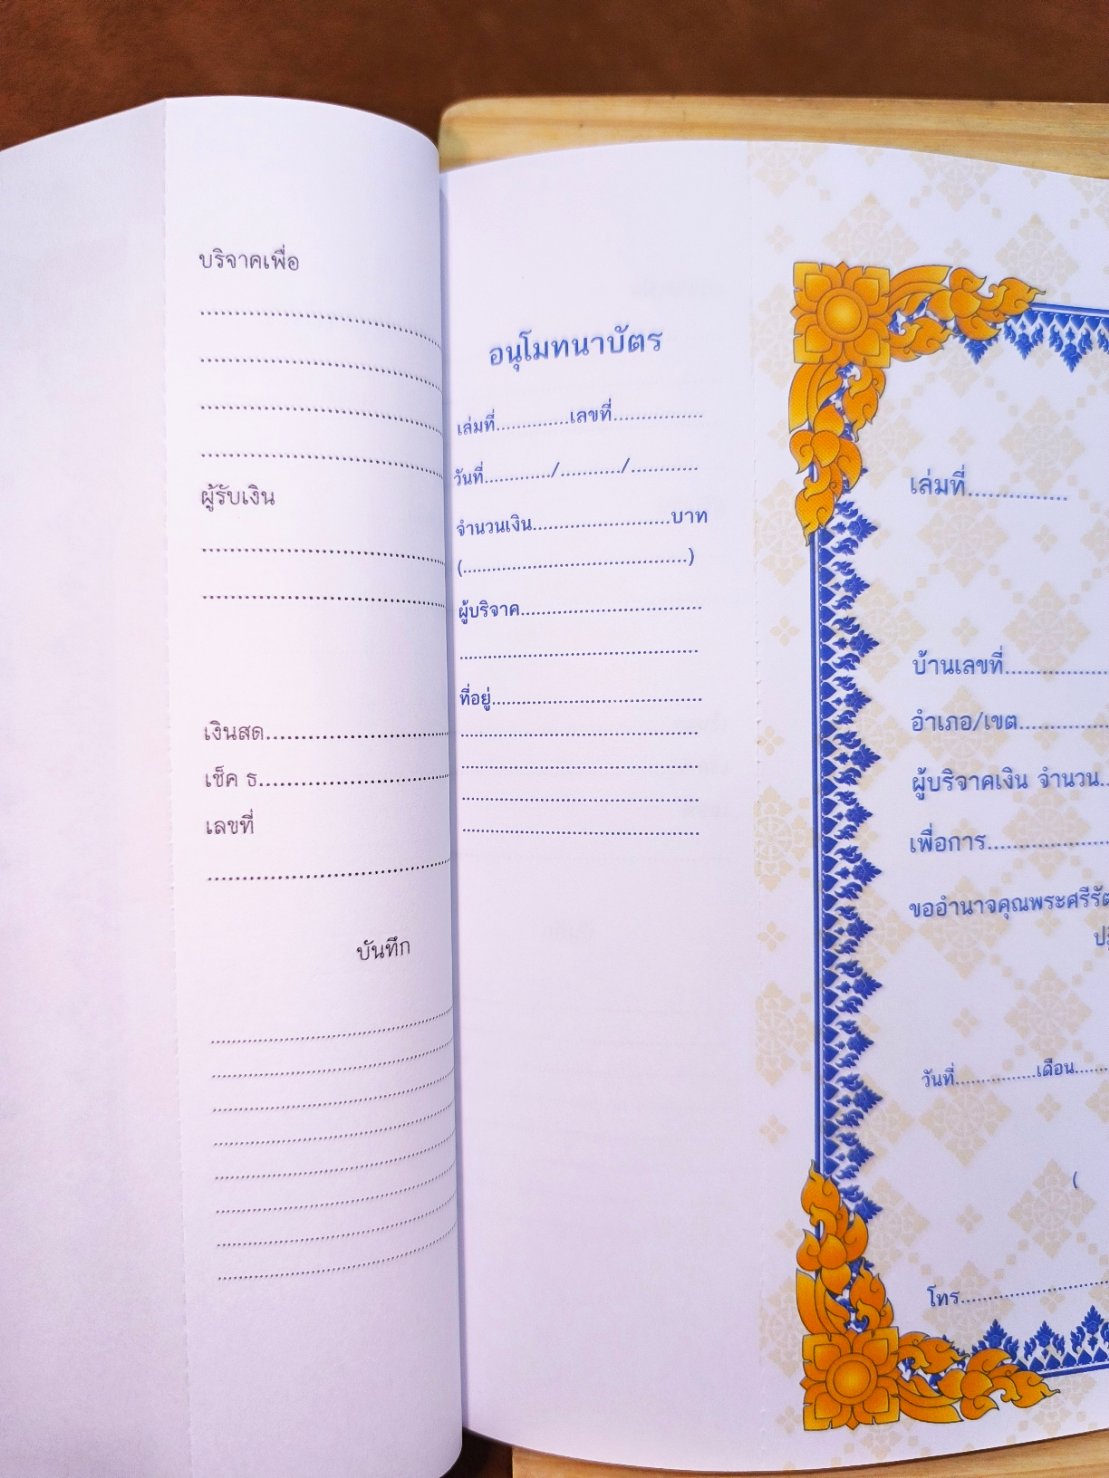 บริจาคเพื่อ
................................
................................
................................
................................
ผู้รับเงิน
................................
................................
เงินสด........................
เช็ค ธ.........................
เลขที่
................................
บันทึก
................................
................................
................................
................................
................................
................................
................................
................................
อนุโมทนาบัตร
เล่มที่..............เลขที่.................
วันที่............/.........../............
จำนวนเงิน.........................บาท
(.........................................)
ผู้บริจาค.................................
...........................................
ที่อยู่......................................
...........................................
...........................................
...........................................
...........................................
เล่มที่...............
บ้านเลขที่..................
อำเภอ/เขต................
ผู้บริจาคเงิน จำนวน..
เพื่อการ....................
ขออำนาจคุณพระศรีรัต
วันที่................เดือน.......
(
โทร.........................